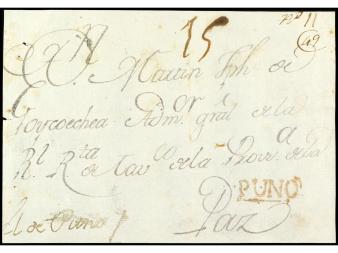 Nº 11
15
49
Dn. Martin Jph. de
Goycoechea Admor. gral de la
Rl. Rta de Tavco de la Prova. de la
PUNO
Paz
El de Puno